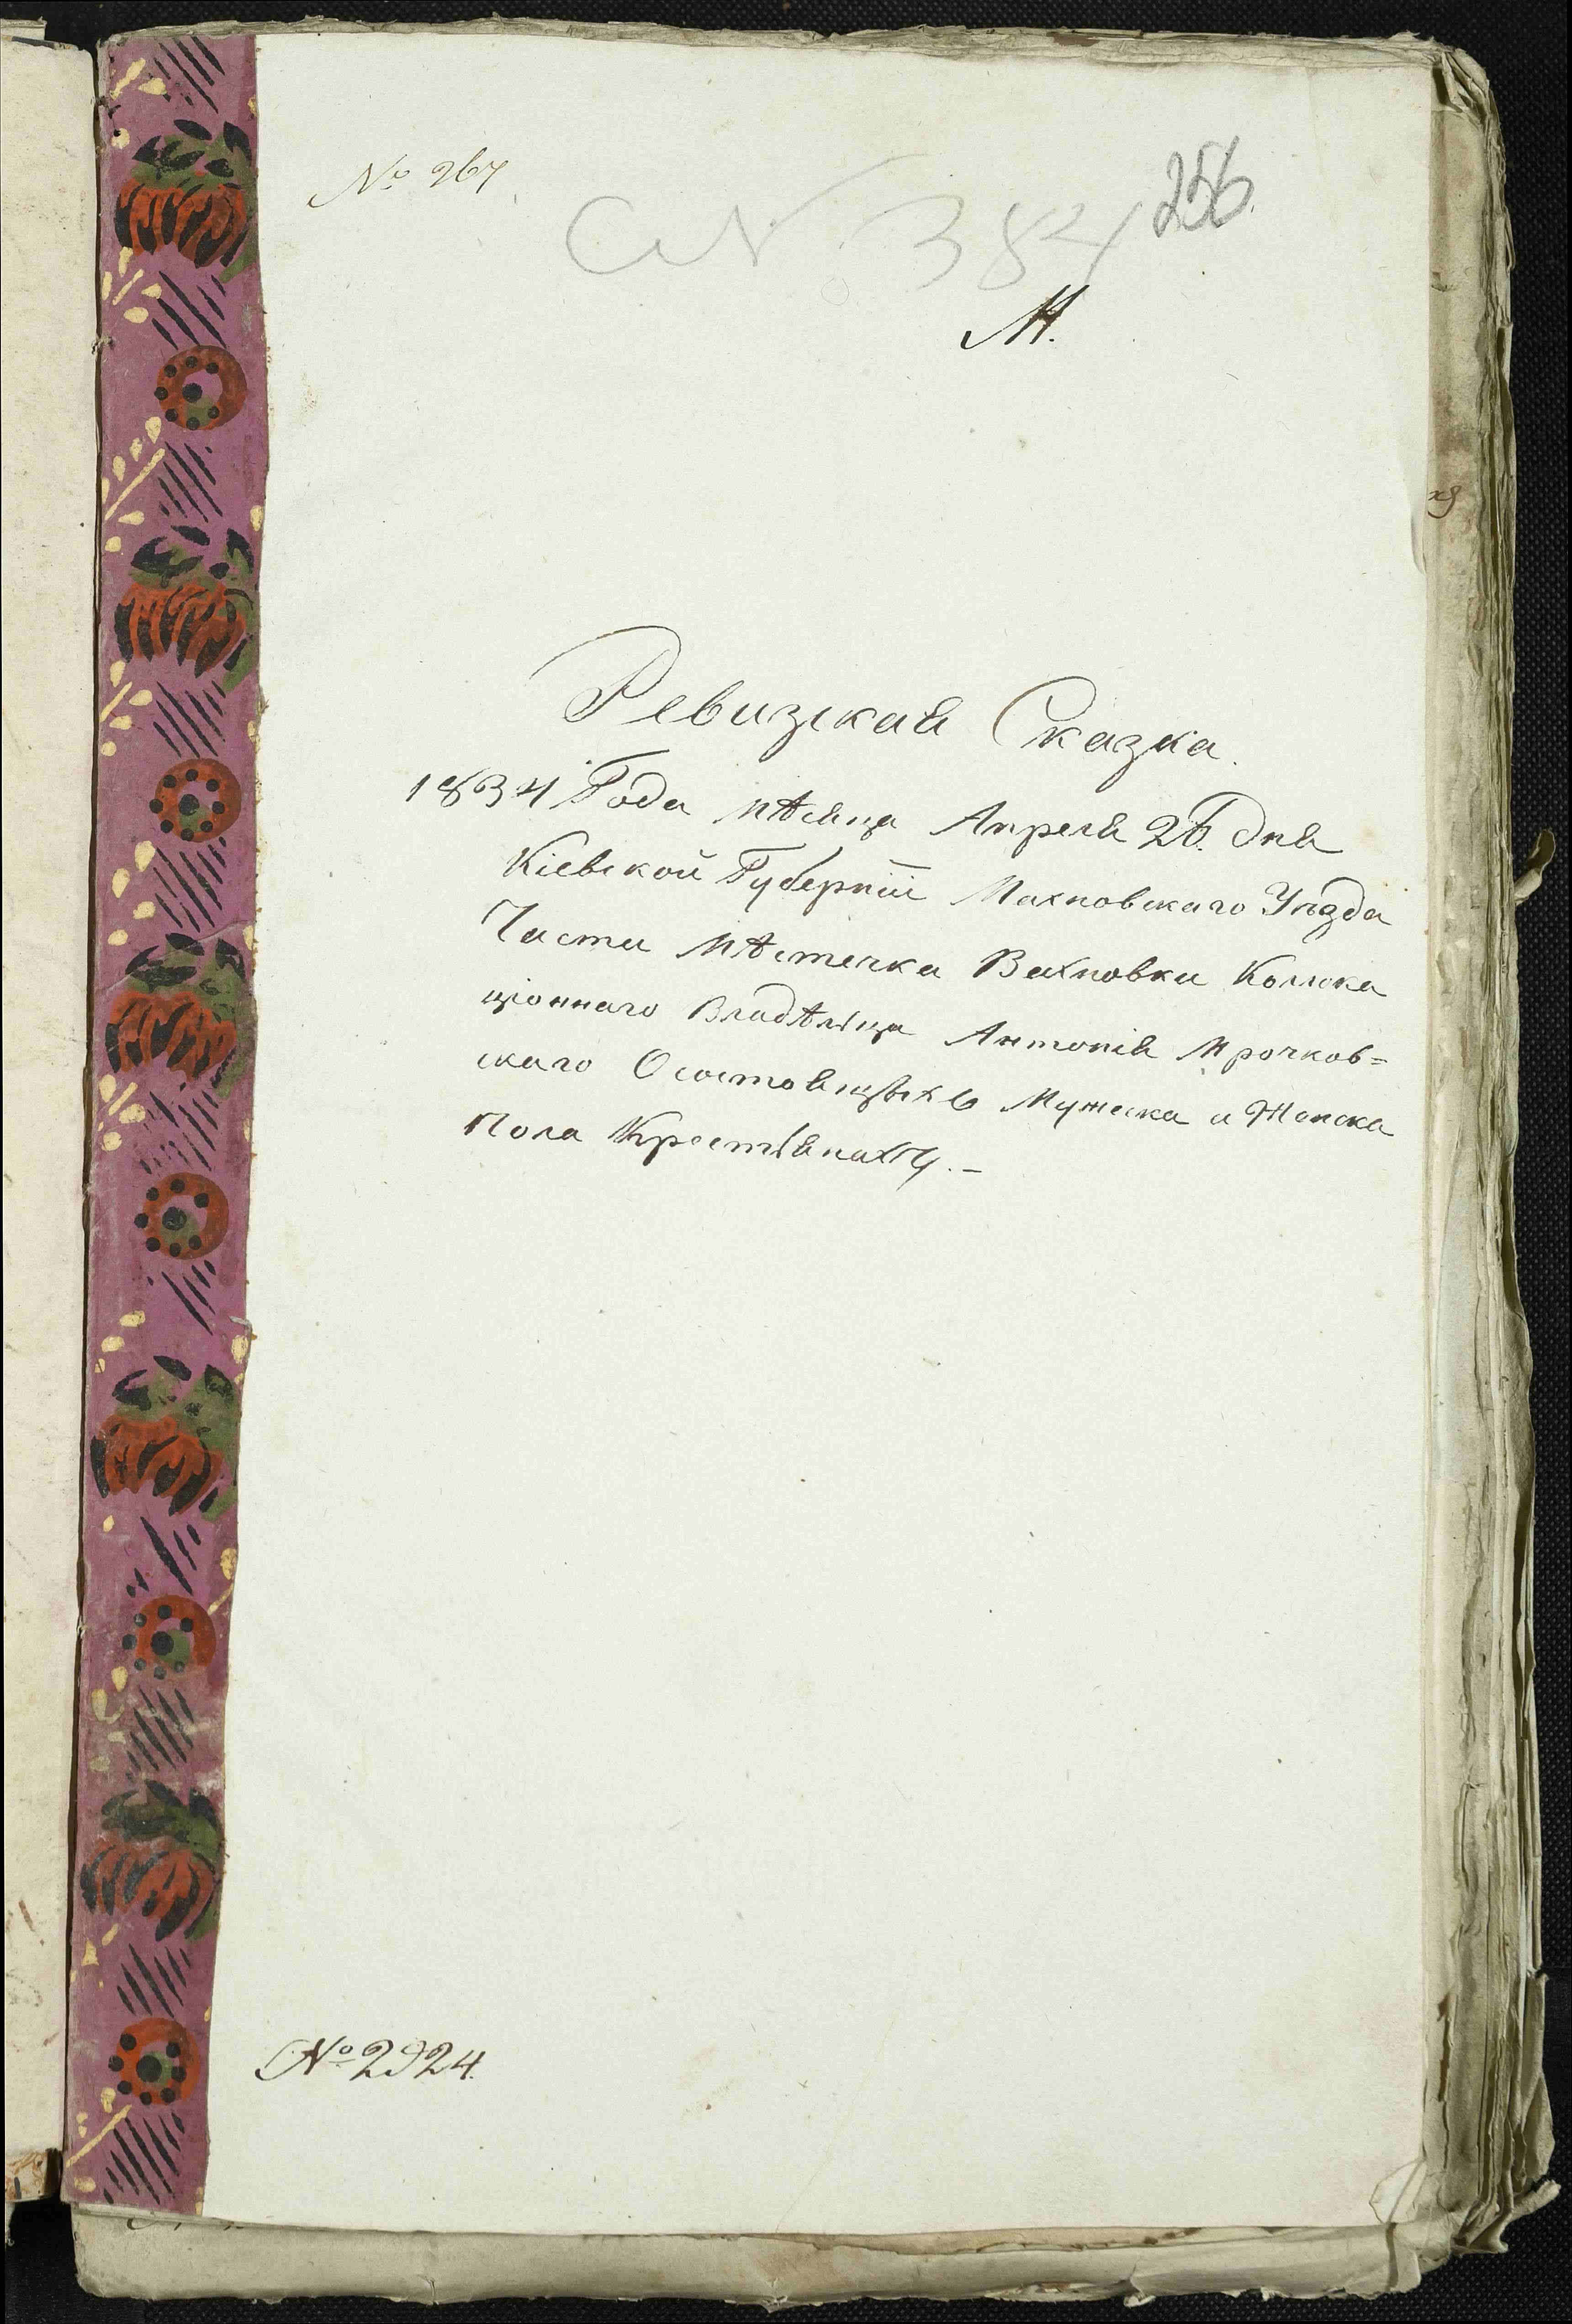 № 267
256.
№ 384
М.
Ревизская Сказка.
1834 Года мѣсяца Апреля 26. дня
Кіевской Губерніи Махновскаго Уѣзда
Части мѣстечка Вахновки Коллока
ціоннаго Владѣльца Антонія Мрочков=
скаго О состоящихъ Мужеска и Женска
Пола Крестьянахъ.–
№ 2924.